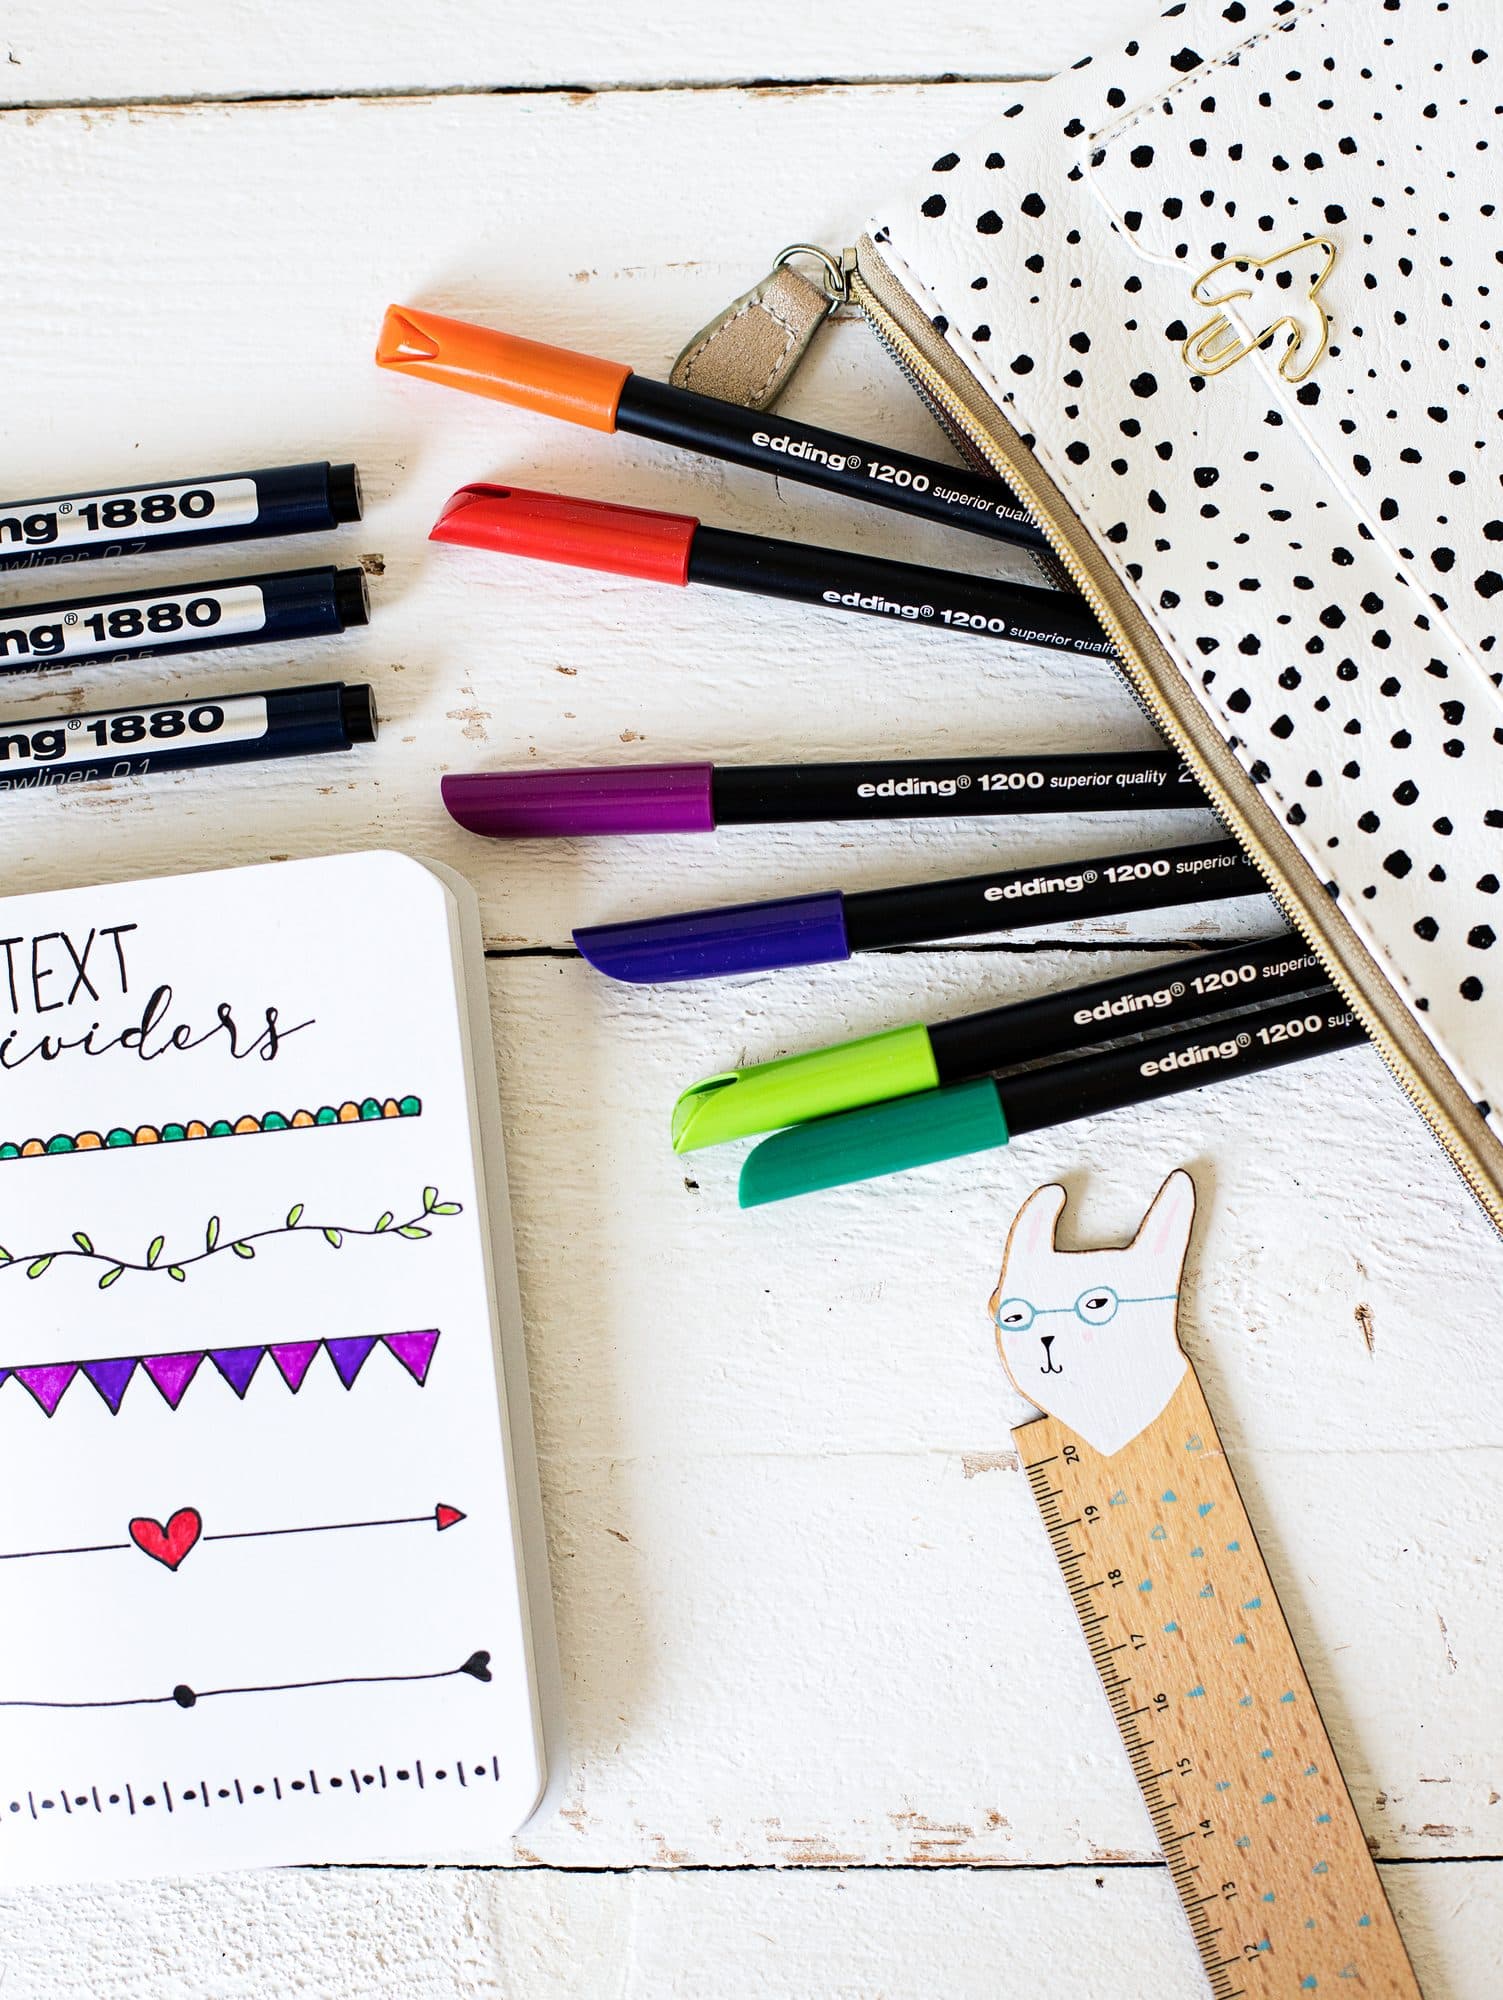 edding® 1200 superior quality
edding® 1200 superior quality
ng® 1880
awliner 0.7
ng® 1880
awliner 0.5
ng® 1880
awliner 0.1
edding® 1200 superior quality 2
edding® 1200 superior q
edding® 1200 superior
edding® 1200 sup
TEXT
ividers
20
19
18
17
16
15
14
13
12